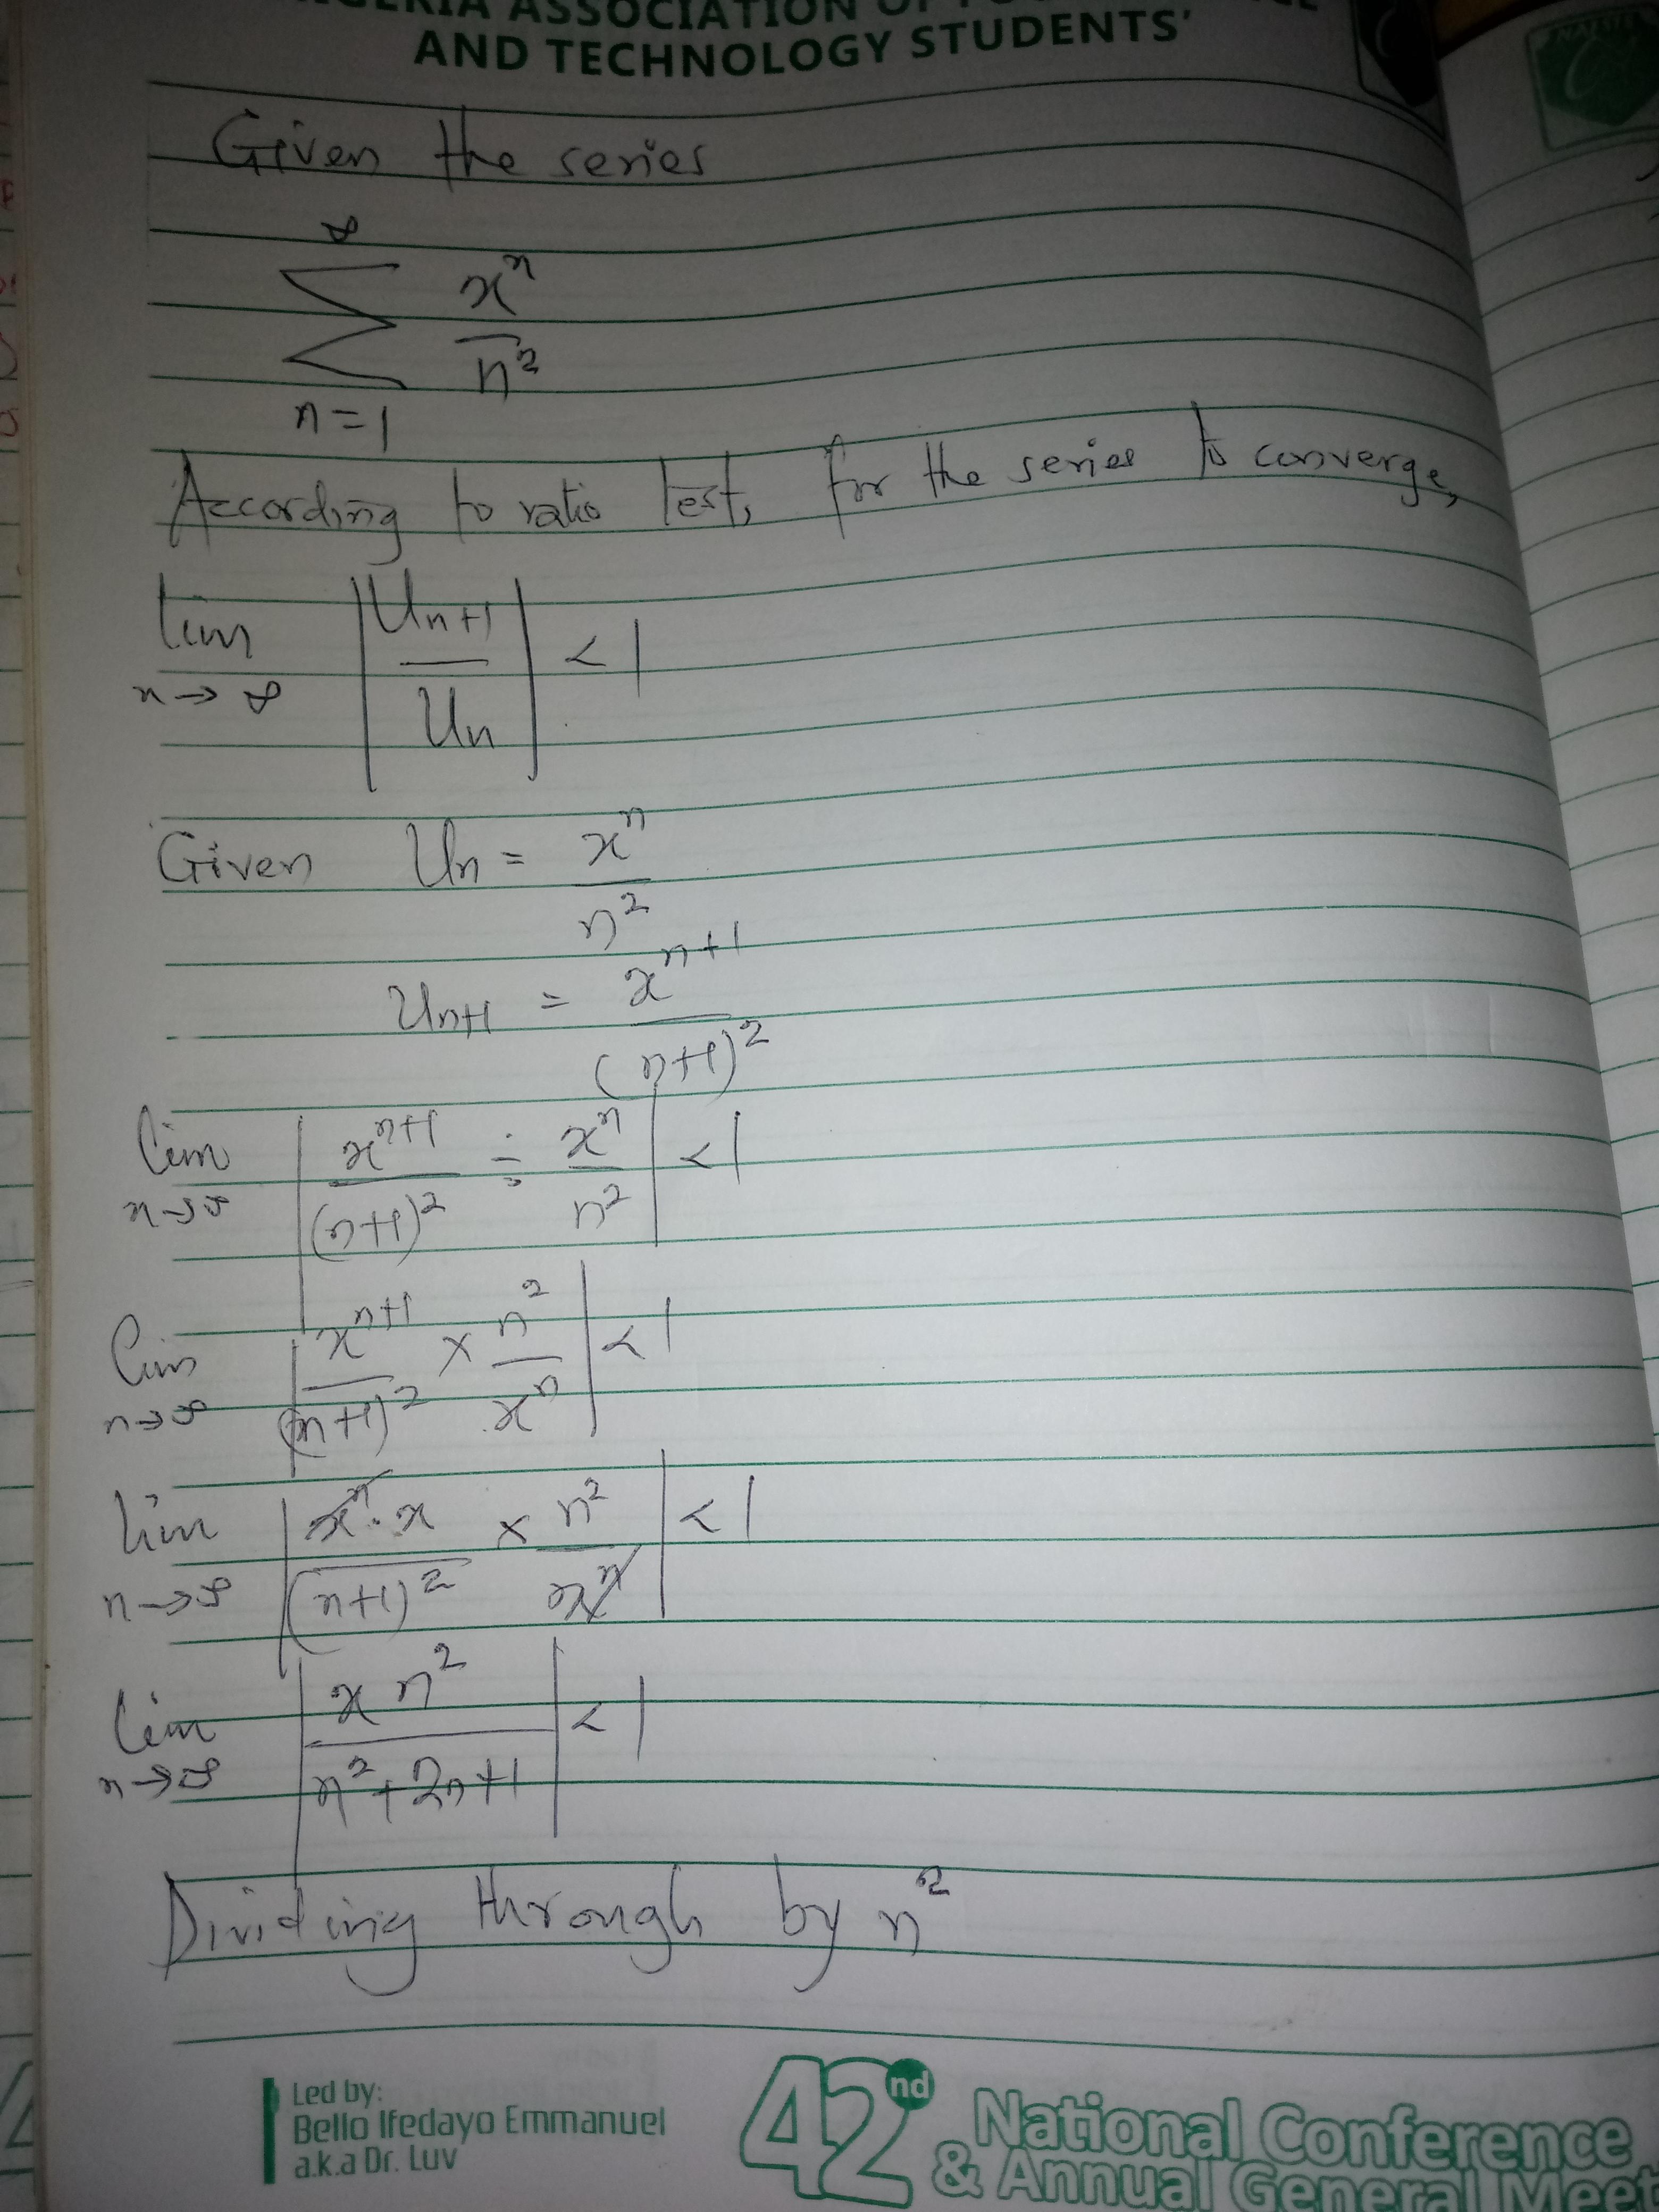 ASSOCIATION
AND TECHNOLOGY STUDENTS'
Given the series
∞
∑ xⁿ / n²
n=1
According to ratio test, for the series to converge,
lim n→∞ |Un+1 / Un| < 1
Given Un = xⁿ / n²
Un+1 = xⁿ⁺¹ / (n+1)²
lim n→∞ |xⁿ⁺¹ / (n+1)² ÷ xⁿ / n²| < 1
lim n→∞ |xⁿ⁺¹ / (n+1)² × n² / xⁿ| < 1
lim n→∞ |xⁿ · x / (n+1)² × n² / xⁿ| < 1
lim n→∞ |x n² / n² + 2n + 1| < 1
Dividing through by n²
Led by:
Bello Ifedayo Emmanuel
a.k.a Dr. Luv
42nd National Conference
& Annual General Meet